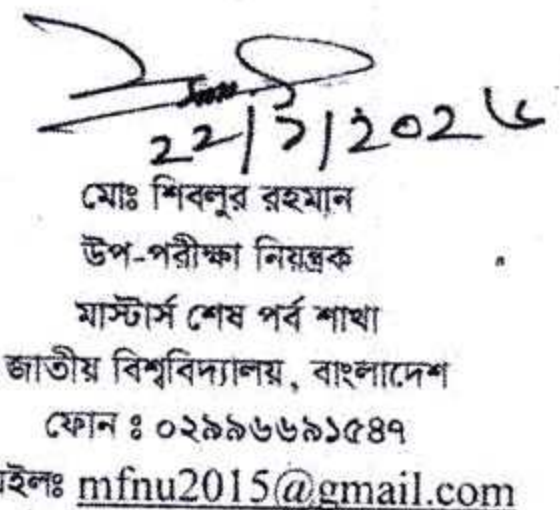 ২২/১/২০২৬
মোঃ শিবলুর রহমান
উপ-পরীক্ষা নিয়ন্ত্রক
মাস্টার্স শেষ পর্ব শাখা
জাতীয় বিশ্ববিদ্যালয়, বাংলাদেশ
ফোন ঃ ০২৯৯৬৬৯১৫৪৭
ইলঃ mfnu2015@gmail.com